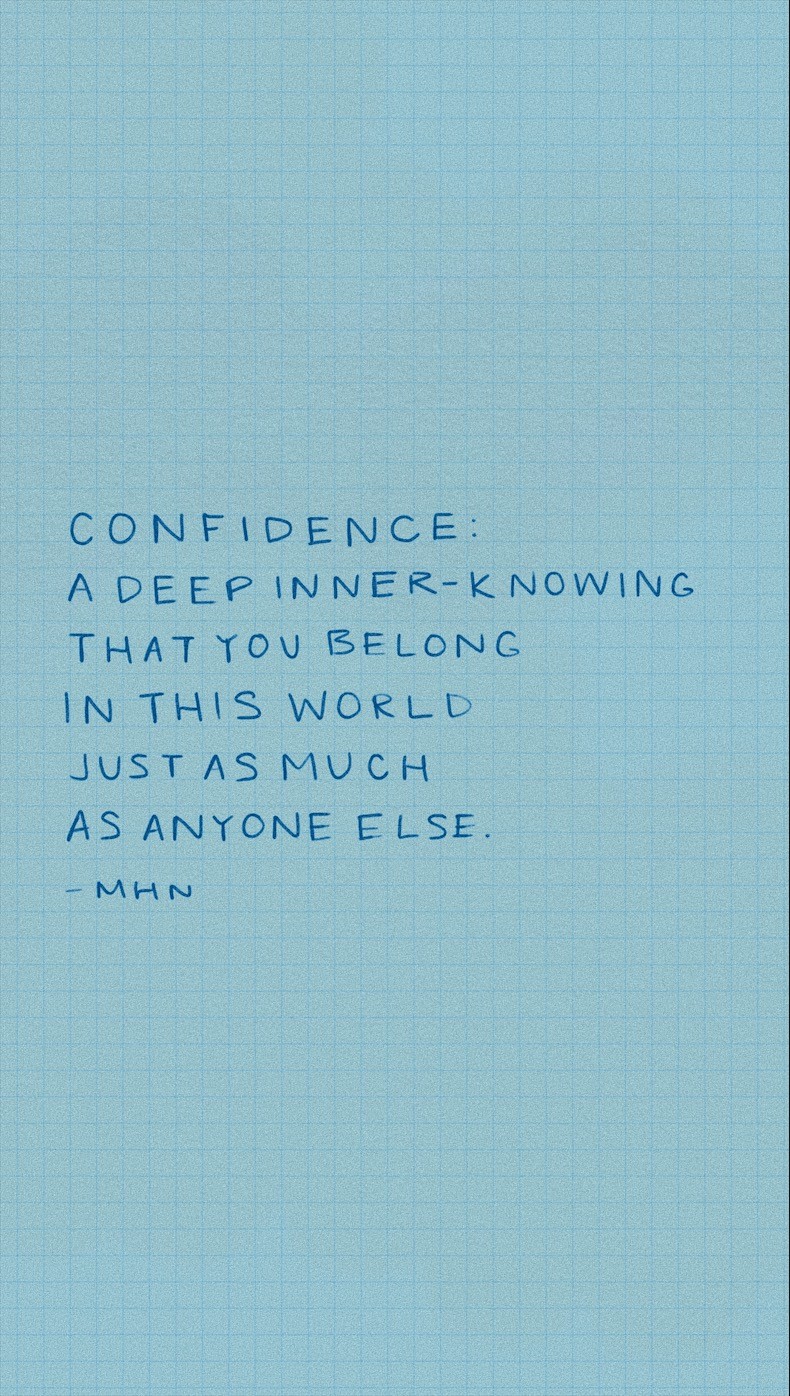 CONFIDENCE:
A DEEP INNER-KNOWING
THAT YOU BELONG
IN THIS WORLD
JUST AS MUCH
AS ANYONE ELSE.
- MHN